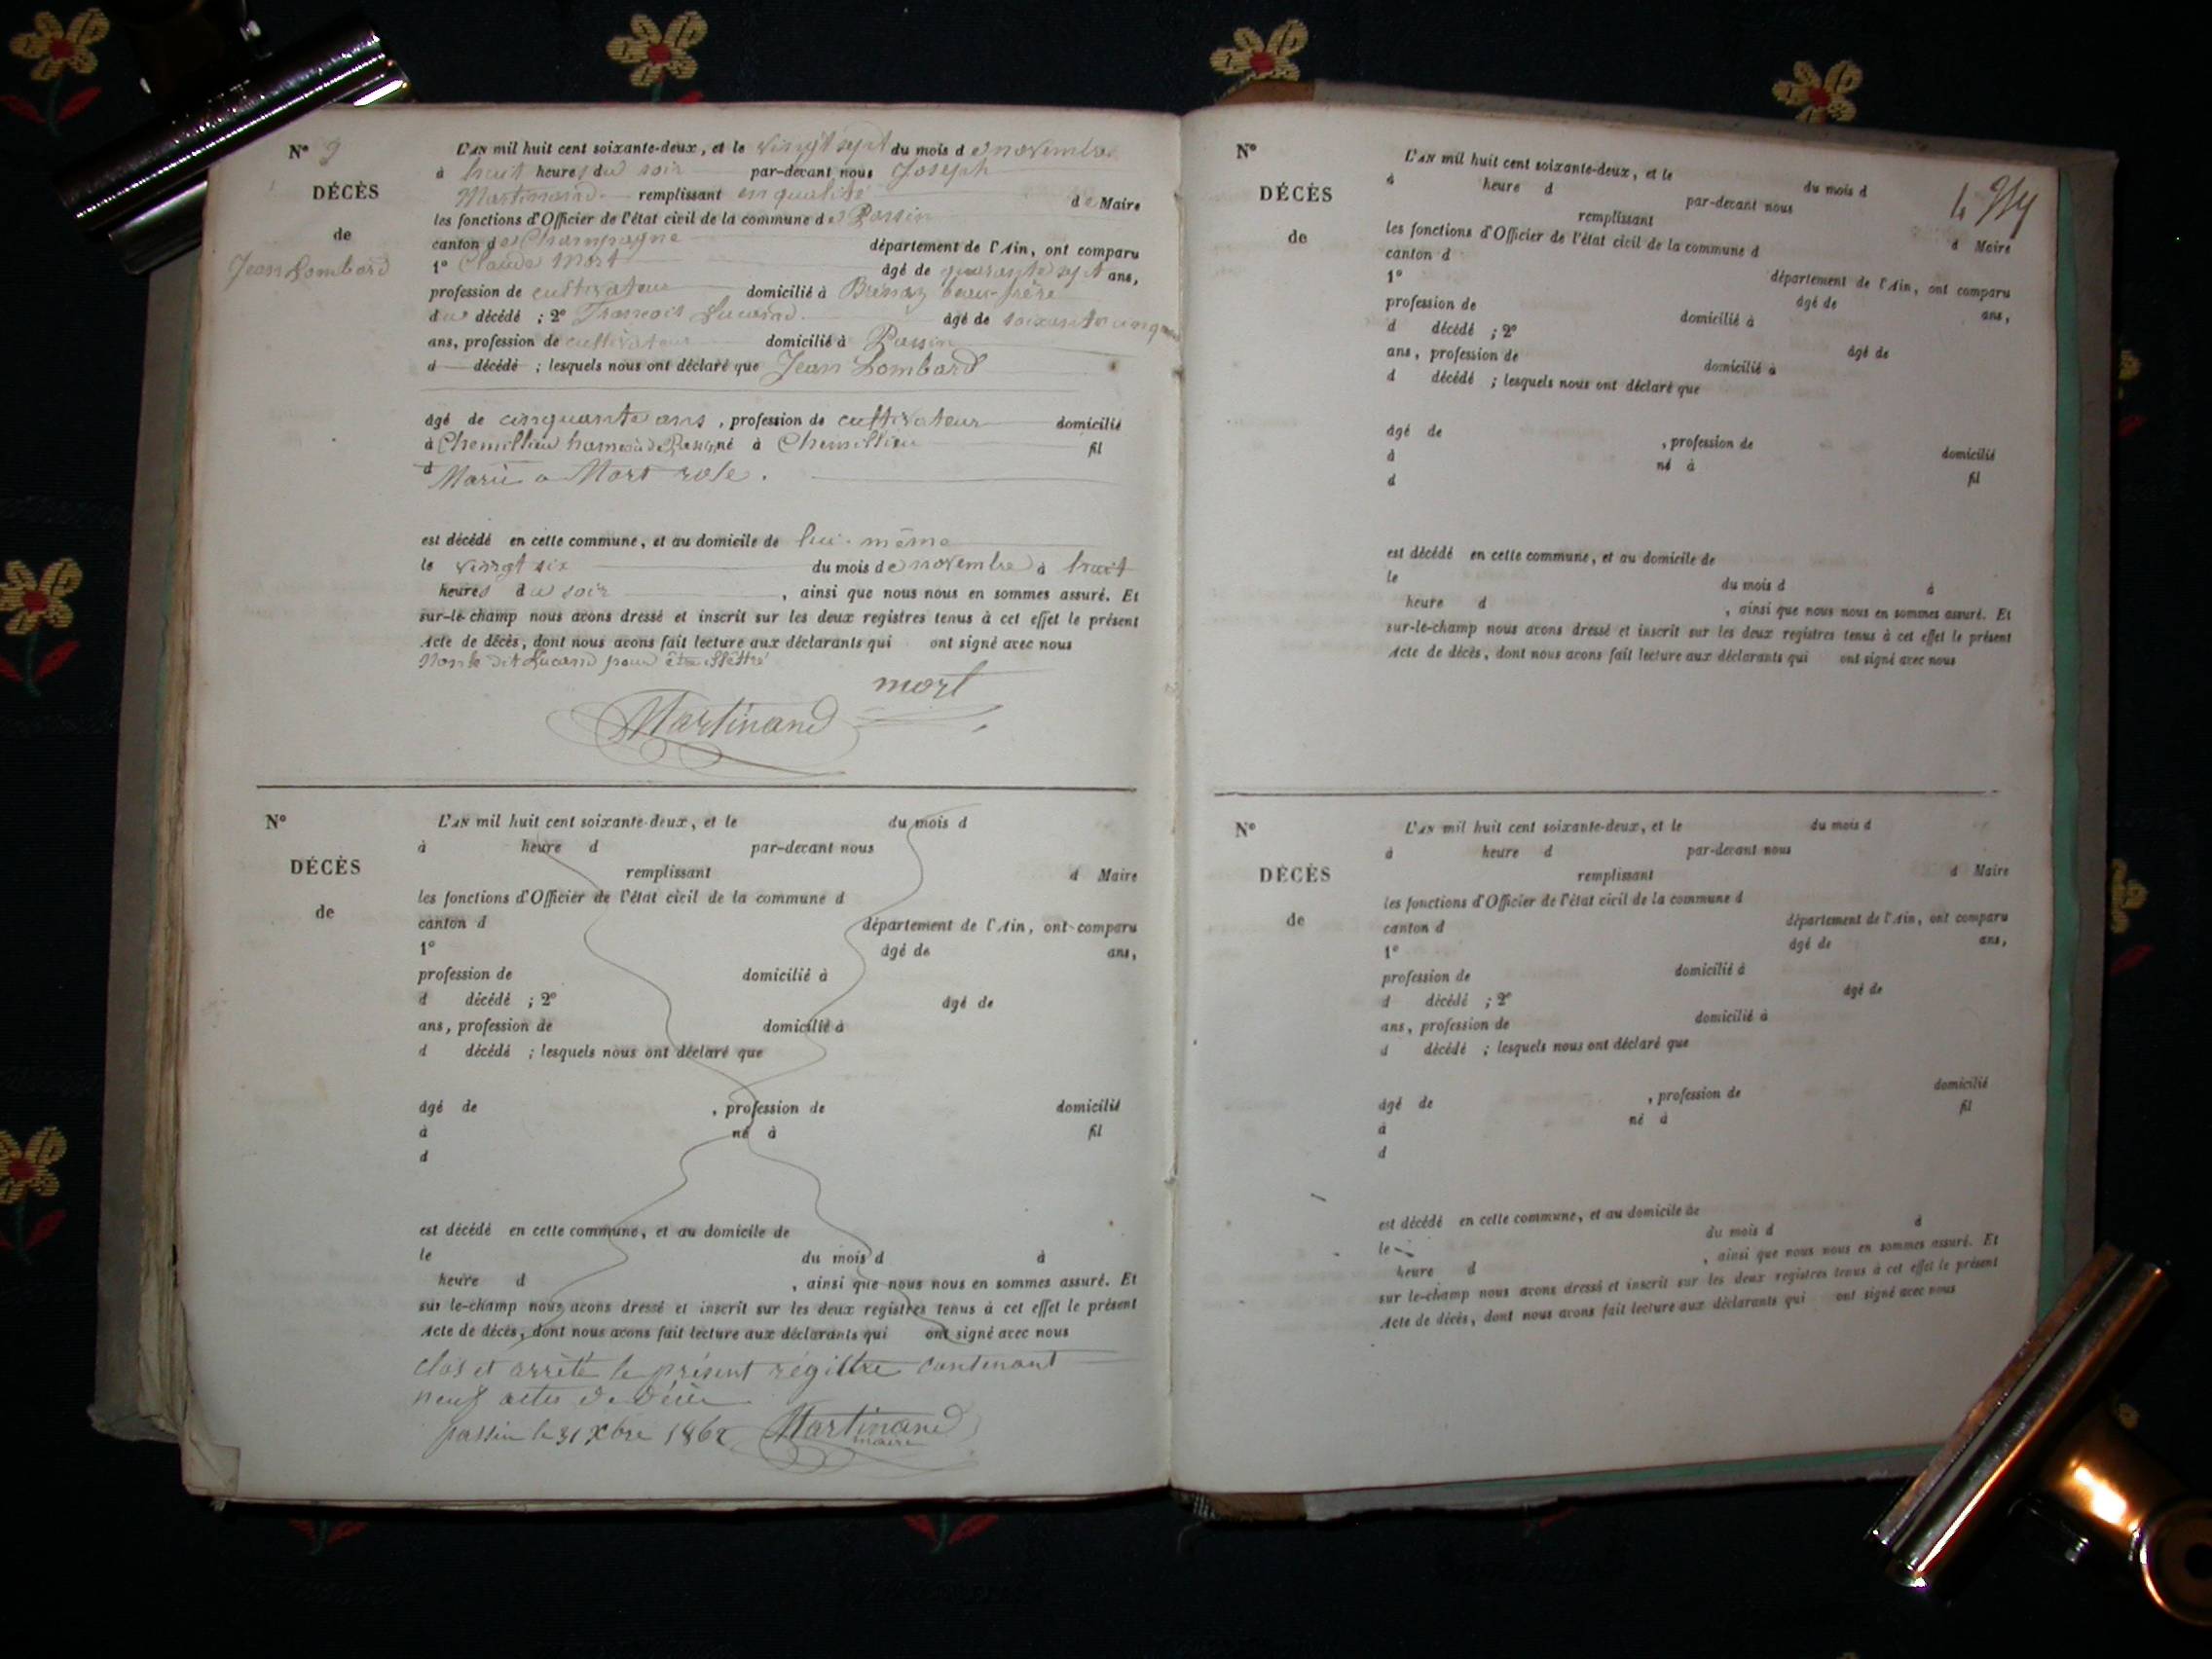 N° 9
DÉCÈS
de
Jean Lombard
L'AN mil huit cent soixante-deux, et le vingt sept du mois de novembre
à huit heures du soir par-devant nous Joseph
Martinand remplissant en qualité de Maire
les fonctions d'Officier de l'état civil de la commune de Passin
canton de Champagne département de l'Ain, ont comparu
1° Claude Mort âgé de quarante sept ans,
profession de cultivateur domicilié à beau-frère
du décédé ; 2° François Lucand âgé de soixante cinq
ans, profession de cultivateur domicilié à Passin
d décédé ; lesquels nous ont déclaré que Jean Lombard
âgé de cinquante ans, profession de cultivateur domicilié
à Chemillieu hameau de Passin né à Chemillieu fil
d
Marié a Mort rose.
est décédé en cette commune, et au domicile de lui-même
le vingt six du mois de novembre à huit
heures du soir, ainsi que nous nous en sommes assuré. Et
sur-le-champ nous avons dressé et inscrit sur les deux registres tenus à cet effet le présent
Acte de décès, dont nous avons fait lecture aux déclarants qui ont signé avec nous
Non le dit Lucand pour être illétré
mort
Martinand
N°
DÉCÈS
de
L'AN mil huit cent soixante-deux, et le du mois d
à heure d par-devant nous
remplissant d Maire
les fonctions d'Officier de l'état civil de la commune d
canton d département de l'Ain, ont comparu
1° âgé de ans,
profession de domicilié à
d décédé ; 2° âgé de
ans, profession de domicilié à
d décédé ; lesquels nous ont déclaré que
âgé de , profession de domicilié
à né à fil
d
est décédé en cette commune, et au domicile de
le du mois d à
heure d , ainsi que nous nous en sommes assuré. Et
sur le-champ nous avons dressé et inscrit sur les deux registres tenus à cet effet le présent
Acte de décès, dont nous avons fait lecture aux déclarants qui ont signé avec nous
clos et arrêté le présent régistre contenant
neuf actes de décès
passin le 31 Xbre 1862 Martinand
maire
N°
DÉCÈS
de
L'AN mil huit cent soixante-deux, et le du mois d
à heure d par-devant nous
remplissant d Maire
les fonctions d'Officier de l'état civil de la commune d
canton d département de l'Ain, ont comparu
1° âgé de ans,
profession de domicilié à
d décédé ; 2° âgé de
ans, profession de domicilié à
d décédé ; lesquels nous ont déclaré que
âgé de , profession de domicilié
à né à fil
d
est décédé en cette commune, et au domicile de
le du mois d à
heure d , ainsi que nous nous en sommes assuré. Et
sur-le-champ nous avons dressé et inscrit sur les deux registres tenus à cet effet le présent
Acte de décès, dont nous avons fait lecture aux déclarants qui ont signé avec nous
N°
DÉCÈS
de
L'AN mil huit cent soixante-deux, et le du mois d
à heure d par-devant nous
remplissant d Maire
les fonctions d'Officier de l'état civil de la commune d
canton d département de l'Ain, ont comparu
1° âgé de ans,
profession de domicilié à
d décédé ; 2° âgé de
ans, profession de domicilié à
d décédé ; lesquels nous ont déclaré que
âgé de , profession de domicilié
à né à fil
d
est décédé en cette commune, et au domicile de
le du mois d à
heure d , ainsi que nous nous en sommes assuré. Et
sur le-champ nous avons dressé et inscrit sur les deux registres tenus à cet effet le présent
Acte de décès, dont nous avons fait lecture aux déclarants qui ont signé avec nous